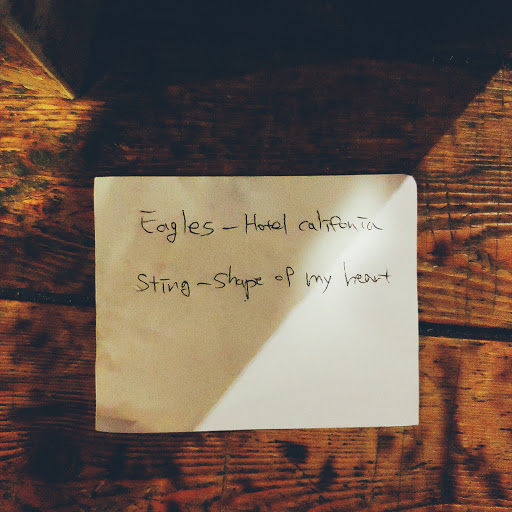 Eagles - Hotel califonia
Sting - Shape of my heart